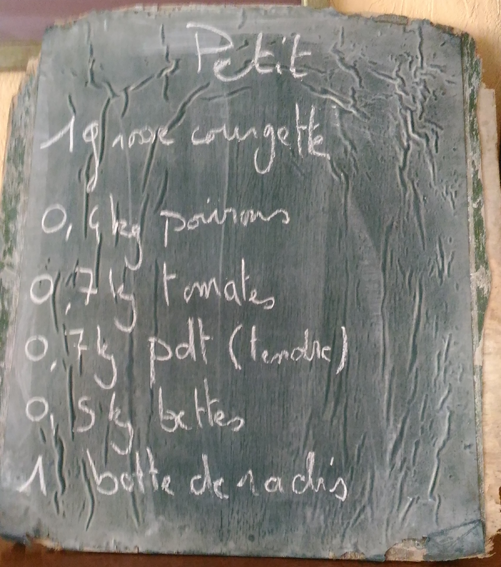 Petit
1 grosse courgette
0,4 kg poivrons
0,7 kg tomates
0,7 kg pdt (tendre)
0,5 kg bettes
1 botte de radis